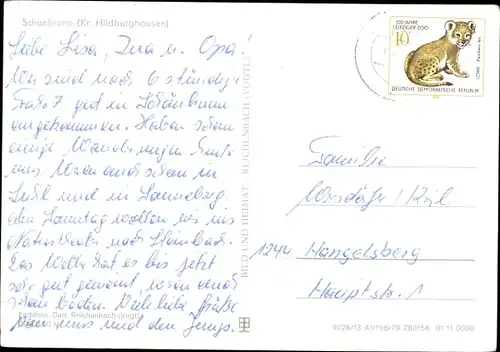 Schönbrunn (Kr. Hildburghausen)
Liebe Lisa, Ina u. Opa!
Wir sind nach 6 stündiger
Fahrt gut in Schönbrunn
angekommen. Haben schon
einige Wanderungen hinter
uns. Waren auch schon in
Suhl und in Sonneberg,
den Sonntag wollen wir ins
Naturtheater nach Steinbach.
Das Wetter hat es bis jetzt
sehr gut gemeint, waren auch
schon baden. Viele liebe Grüße
von uns und den Jungs.
Farbfoto: Dam, Reichenbach (Vogtl)
BILD UND HEIMAT REICHENBACH (VOGTL)
100 JAHRE
LEIPZIGER ZOO
10
LÖWE Panthera leo
DEUTSCHE DEMOKRATISCHE REPUBLIK
Familie
1244 Hangelsberg
Hauptstr. 1
III/26/13 A1/156/79 280156 01 11 0008